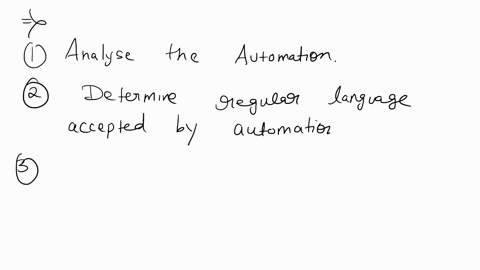 ⇒
① Analyse the Automation.
② Determine regular language
accepted by automation
③